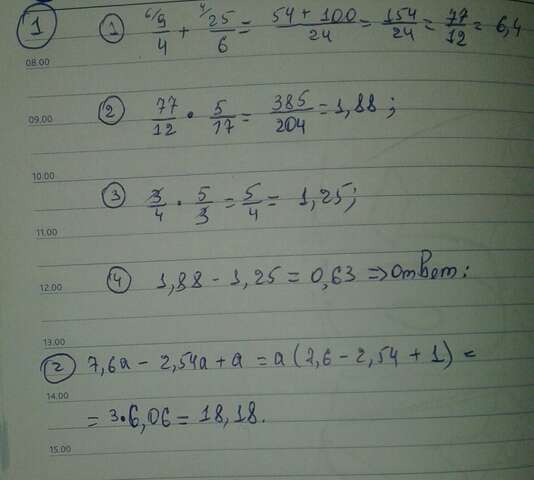 1 ① ⁶/9/4 + ⁴/25/6 = 54 + 100/24 = 154/24 = 77/12 = 6,4
08.00
② 77/12 · 5/17 = 385/204 = 1,88;
09.00
10.00
③ 3/4 · 5/3 = 5/4 = 1,25;
11.00
④ 1,88 - 1,25 = 0,63 => Ответ:
12.00
13.00
② 7,6a - 2,54a + a = a (7,6 - 2,54 + 1) =
14.00
= 3·6,06 = 18,18.
15.00